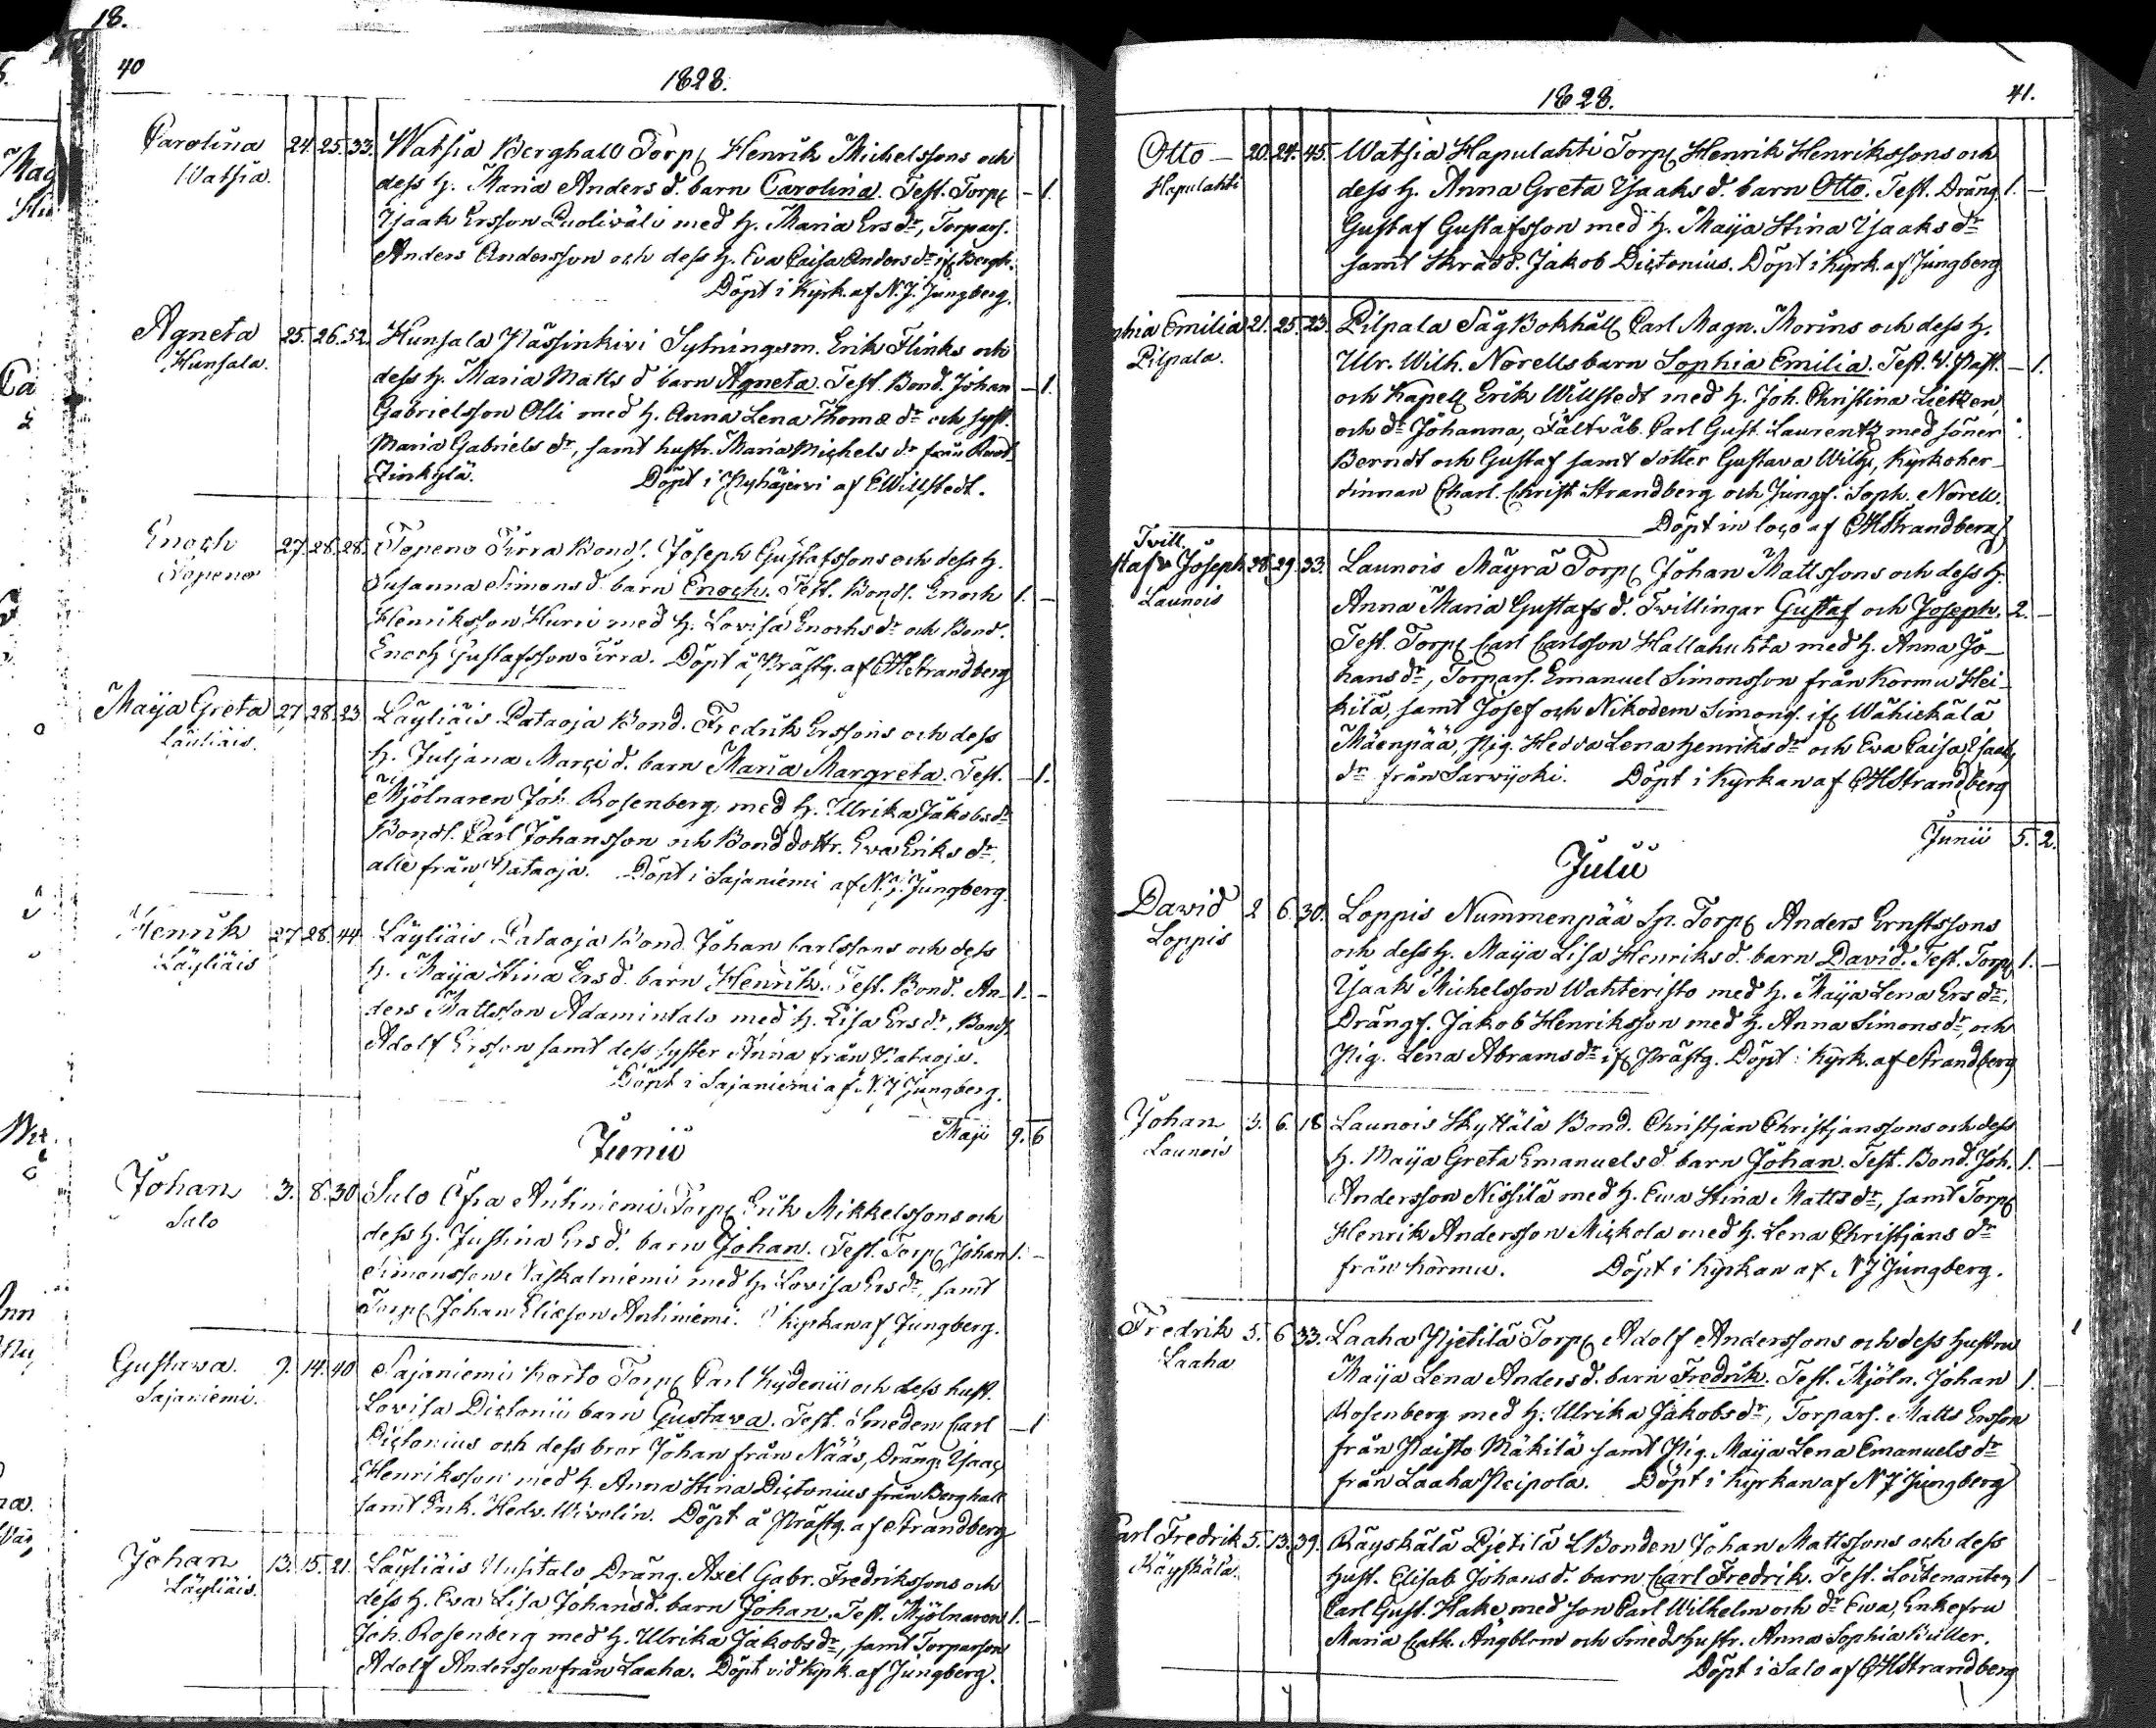 18.
40
1828.
Carolina 24. 25. 33. Watsia Berghall Torp. Henrik Michelssons och
Watsia. dess h. Maria Anders d. barn Carolina. Test. Torp. – 1.
Isaak Ersson Puoliväli med h. Maria Ers dr, Torpars.
Anders Andersson och dess h. Eva Caisa Anders dr if. Bergh.
Döpt i Kyrk. af N. J. Jungberg.
Agneta 25. 26. 32. Hunsala Hässinkivi Sytningsm. Erik Flinks och
Hunsala. dess h. Maria Matts d barn Agneta. Test. Bond. Johan – 1.
Gabrielsson Olli med h. Anna Lena Thomæ dr och syst.
Maria Gabriels dr, samt hustr. Maria Michels dr från
Döpt i Pyhäjervi af E Willstedt.
Enoch 27. 28. 28. Topeno Tirra Bonds. Joseph Gustafssons och dess h.
Topeno Susanna Simons d. barn Enoch. Test. Bonds. Enoch 1. –
Henriksson Hurri med h. Lovisa Enochs dr och Bond.
Enoch Gustafsson Tirra. Döpt å Prästg. af CHStrandberg
Maija Greta 27. 28. 23. Läyliäis Pataoja Bond. Fredrik Erssons och dess
Läyliäis. h. Juljana Marci d. barn Maria Margreta. Test. – 1.
Mjölnaren Joh. Rosenberg, med h. Ulrika Jakobs dr
Bonds. Carl Johansson och Bonddottr. Eva Eriks dr,
alle från Pataoja. Döpt i Sajaniemi af N. J. Jungberg.
Henrik 27. 28. 44. Läyliäis Pataoja Bond. Johan Carlssons och dess
Läyliäis h. Maija Stina Ers d. barn Henrik. Test. Bond. An- 1. –
ders Mattsson Adamintalo med h. Lisa Ers dr, Bonds.
Adolf Ersson samt dess syster Anna från Pataoja.
Döpt i Sajaniemi af N. J Jungberg.
Maji 9. 6
Junii
Johan 3. 8. 30 Salo Ofra Antiniemi Torp. Erik Mikkelssons och
Salo dess h. Justina Ers d. barn Johan. Test. Torp. Johan 1. –
Simonsson Naskalniemi med h. Lovisa Ers dr, samt
Torp. Johan Eliæson Antiniemi. i kyrkan af Jungberg.
Gustava. 9. 14. 40 Sajaniemi Karto Torp. Carl Kydenii och dess hust.
Sajaniemi. Lovisa Dictonii barn Gustava. Test. Smeden Carl – 1
Dictonius och dess bror Johan från Nääs, Dräng. Isaac
Henriksson med h. Anna Stina Dictonius från Berghall
samt Enk. Hedv. Wivolin. Döpt å Prästg. af Strandberg
Johan 13. 15. 21. Läyliäis Uusitalo Dräng. Axel Gabr. Fredrikssons och
Läyliäis. dess h. Eva Lisa Johans d. barn Johan. Test. Mjölnaren 1. –
Joh. Rosenberg med h. Ulrika Jakobs dr, samt Torparson
Adolf Andersson från Laaha. Döpt vid Kyrk. af Jungberg.
1828.
41.
Otto – 20. 24. 45. Watsia Hapulahti Torp. Henrik Henrikssons och
Hapulahti dess h. Anna Greta Isaaks d. barn Otto. Test. Dräng. 1. –
Gustaf Gustafsson med h. Maija Stina Isaaks dr
samt Skrädd. Jakob Dictonius. Döpt i Kyrk. af Jungberg
phia Emilia 21. 25. 23. Pilpala Såg Bokhåll. Carl Magn. Morins och dess h.
Pilpala. Ulr. Wilh. Norells barn Sophia Emilia. Test. V. Past. – 1.
och Kapell. Erik Willstedt med h. Joh. Christina Lietzen,
och dr Johanna, Fältväb. Carl Gust. Laurentz med söner
Berndt och Gustaf samt dotter Gustava Wilh., Kyrkoher-
dinnan Charl. Christ. Strandberg och Jungf. Soph. Norell.
Döpt in loco af CHStrandberg
Tvill.
staf & Joseph 28. 29. 33. Launois Mäyrä Torp. Johan Mattssons och dess h.
Launois Anna Maria Gustafs d. Tvillingar Gustaf och Joseph. 2. –
Test. Torp. Carl Carlsson Hallahuhta med h. Anna Jo-
hans dr, Torpars. Emanuel Simonsson från Kormu Hei-
kilä, samt Josef och Nikodem Simons. if. Wähickälä
Mäenpää, Pig. Hedva Lena Henriks dr och Eva Caisa Isaaks
dr från Sarvijoki. Döpt i Kyrkan af CHStrandberg
Junii 5. 2.
Julii
David 2 6. 30. Loppis Nummenpää Sp. Torp. Anders Ernstssons
Loppis och dess h. Maija Lisa Henriks d. barn David. Test. Torp. 1. –
Isaak Michelsson Wahteristo med h. Maija Lena Ers dr,
Drängs. Jakob Henriksson med h. Anna Simons dr, och
Pig. Lena Abrams dr if. Prästg. Döpt i Kyrk. af Strandberg
Johan 3. 6. 18 Launois Skyttälä Bond. Christjan Christjanssons och dess
Launois h. Maija Greta Emanuels d. barn Johan. Test. Bond. Joh. 1. –
Andersson Nissilä med h. Ewa Stina Matts dr, samt Torp.
Henrik Andersson Mickola med h. Lena Christjans dr
från Kormu. Döpt i kyrkan af N J Jungberg.
Fredrik 5. 6. 33. Laaha Pjetilä Torp. Adolf Anderssons och dess hustru
Laaha Maija Lena Anders d. barn Fredrik. Test. Mjöln. Johan 1. –
Rosenberg med h. Ulrika Jakobs dr, Torpars. Matts Ersson
från Paisto Mäkilä samt Pig. Maija Lena Emanuels dr
från Laaha Reipola. Döpt i Kyrkan af N J Jungberg
Carl Fredrik 5. 13. 39. Räyskälä Pjetilä LBonden Johan Mattssons och dess
Räyskälä. Hust. Elisab. Johans d. barn Carl Fredrik. Test. Löitenanten 1 –
Carl Gust. Hake med son Carl Wilhelm och dr Ewa, Enkefru
Maria Cath. Ängblom och Smedshustr. Anna Sophia Buller.
Döpt i Salo af CHStrandberg